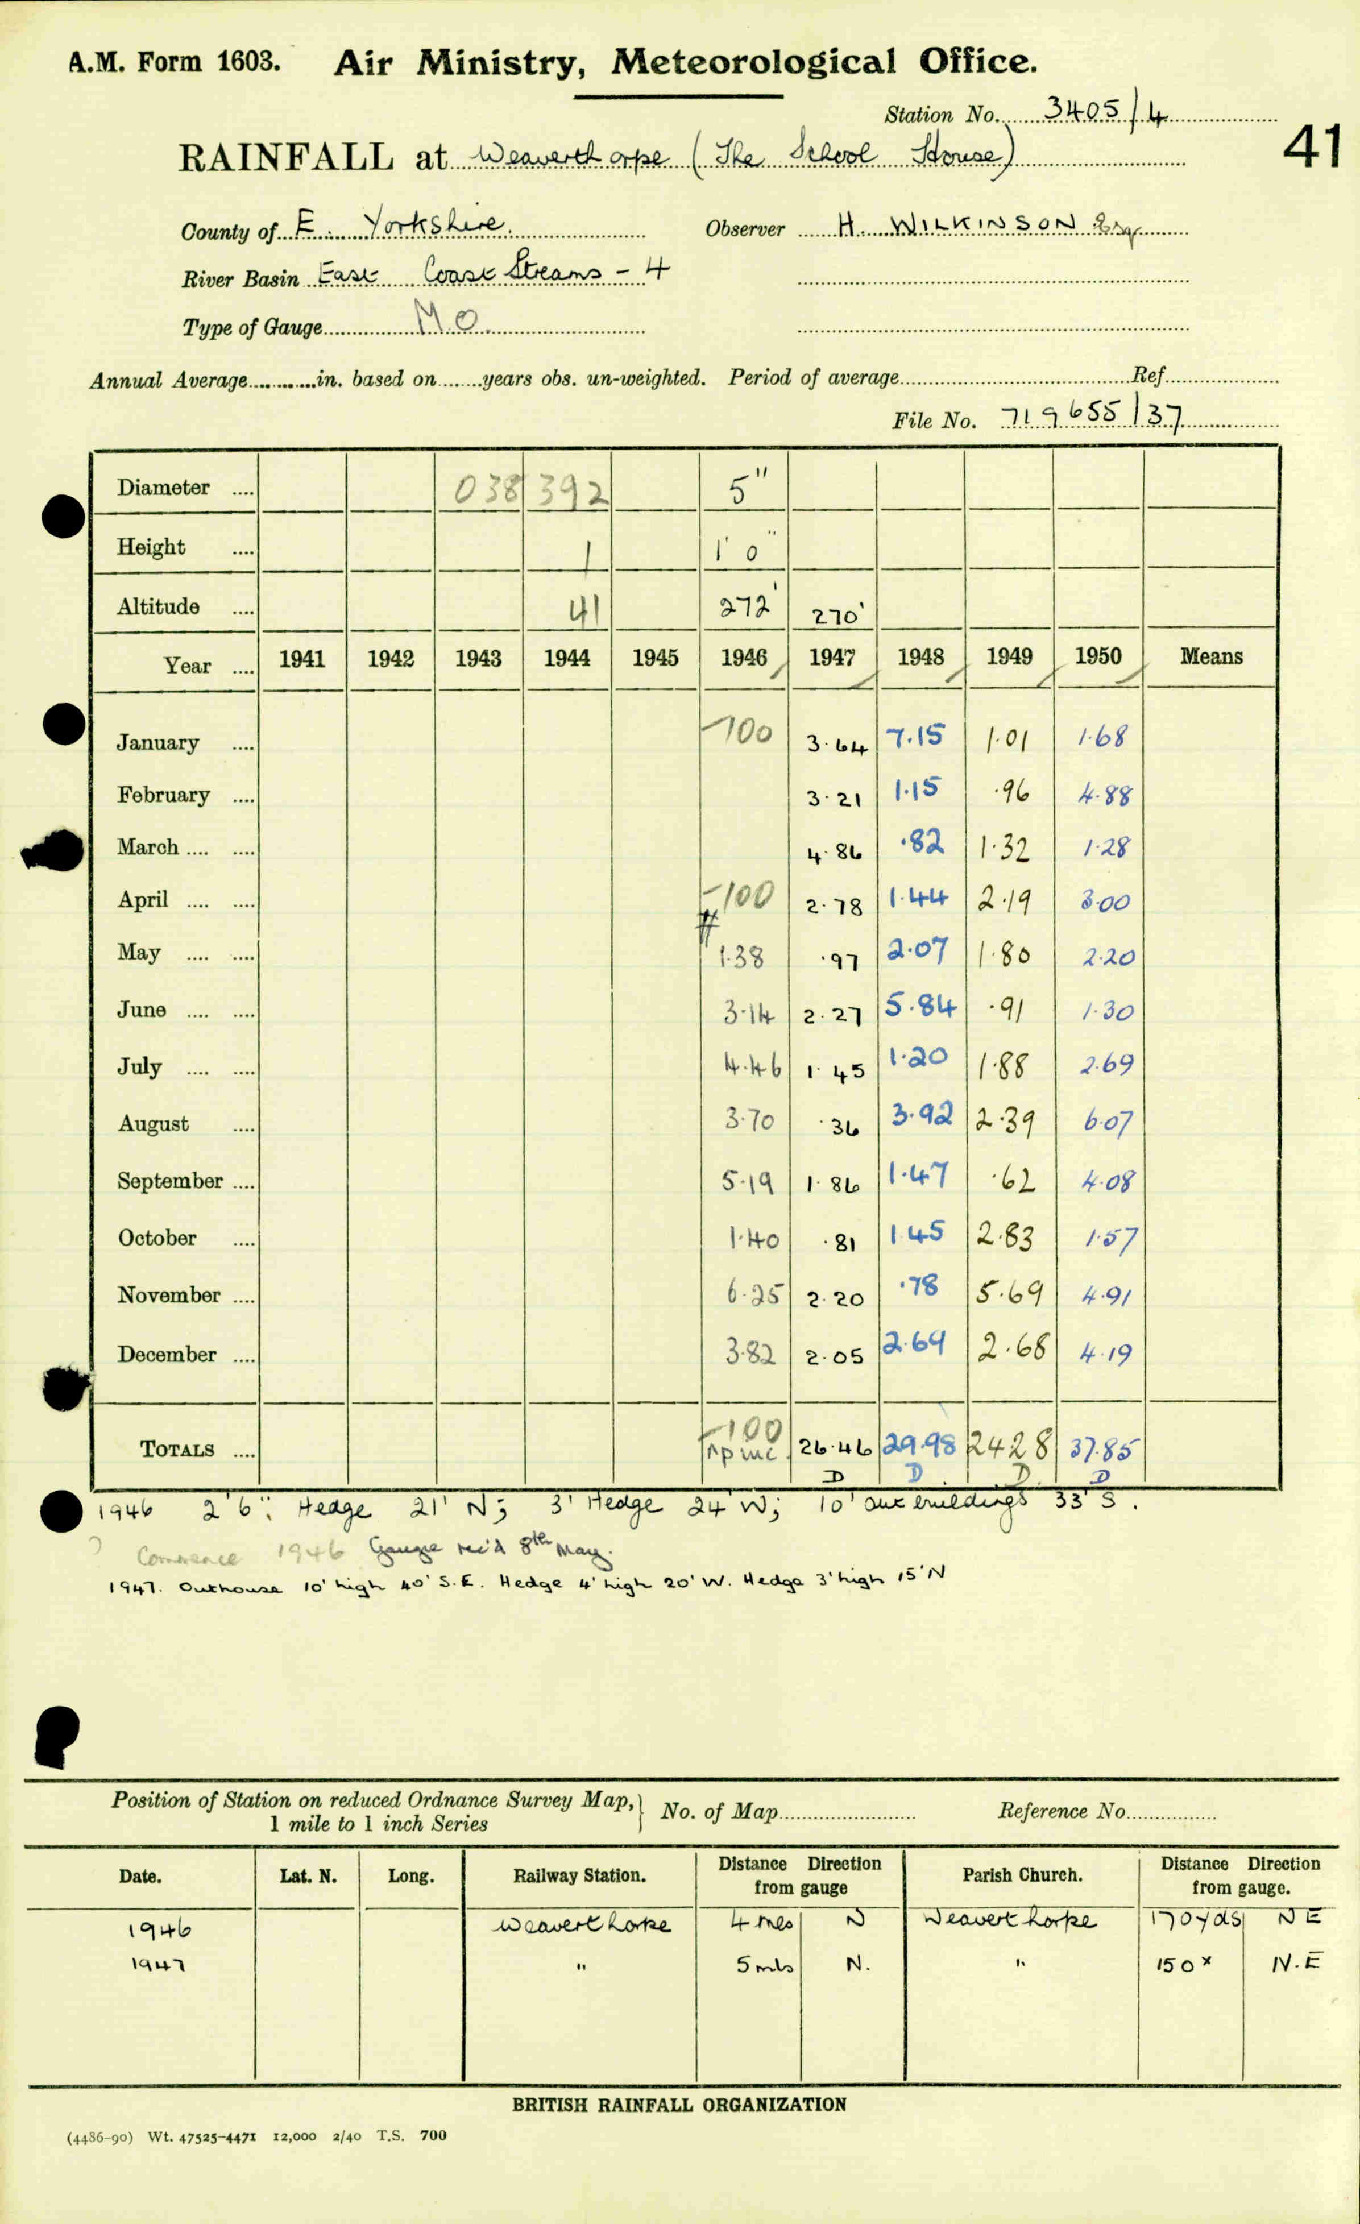 A.M. Form 1603. Air Ministry, Meteorological Office.
Station No. 3405/4
41
RAINFALL at Weaverthorpe (The School House)
County of E. Yorkshire. Observer H. WILKINSON Esq
River Basin East Coast Streams - 4
Type of Gauge M.O.
Annual Average in. based on years obs. un-weighted. Period of average Ref
File No. 719655/37
Diameter .... 038 392 5"
Height .... 1 1' 0"
Altitude .... 41 272' 270'
Year .... 1941 1942 1943 1944 1945 1946 1947 1948 1949 1950 Means
January .... -100 3.64 7.15 1.01 1.68
February .... 3.21 1.15 .96 4.88
March .... .... 4.86 .82 1.32 1.28
April .... .... -100 2.78 1.44 2.19 3.00
May .... .... # 1.38 .97 2.07 1.80 2.20
June .... .... 3.14 2.27 5.84 .91 1.30
July .... .... 4.46 1.45 1.20 1.88 2.69
August .... 3.70 .36 3.92 2.39 6.07
September .... 5.19 1.86 1.47 .62 4.08
October .... 1.40 .81 1.45 2.83 1.57
November .... 6.25 2.20 .78 5.69 4.91
December .... 3.82 2.05 2.69 2.68 4.19
-100
TOTALS .... 26.46 29.98 24.28 37.85
D D. D. D
1946 2'6" Hedge 21' N; 3' Hedge 24' W; 10' outbuildings 33' S.
? Commence 1946 Gauge rec'd 8th May.
1947. Outhouse 10' high 40' S.E. Hedge 4' high 20' W. Hedge 3' high 15' N
Position of Station on reduced Ordnance Survey Map, 1 mile to 1 inch Series } No. of Map Reference No.
Date. Lat. N. Long. Railway Station. Distance Direction from gauge Parish Church. Distance Direction from gauge.
1946 Weaverthorpe 4 mls N Weaverthorpe 170 yds N E
1947 " 5 mls N. " 150 x N.E
BRITISH RAINFALL ORGANIZATION
(4486-90) Wt. 47525-4471 12,000 2/40 T.S. 700